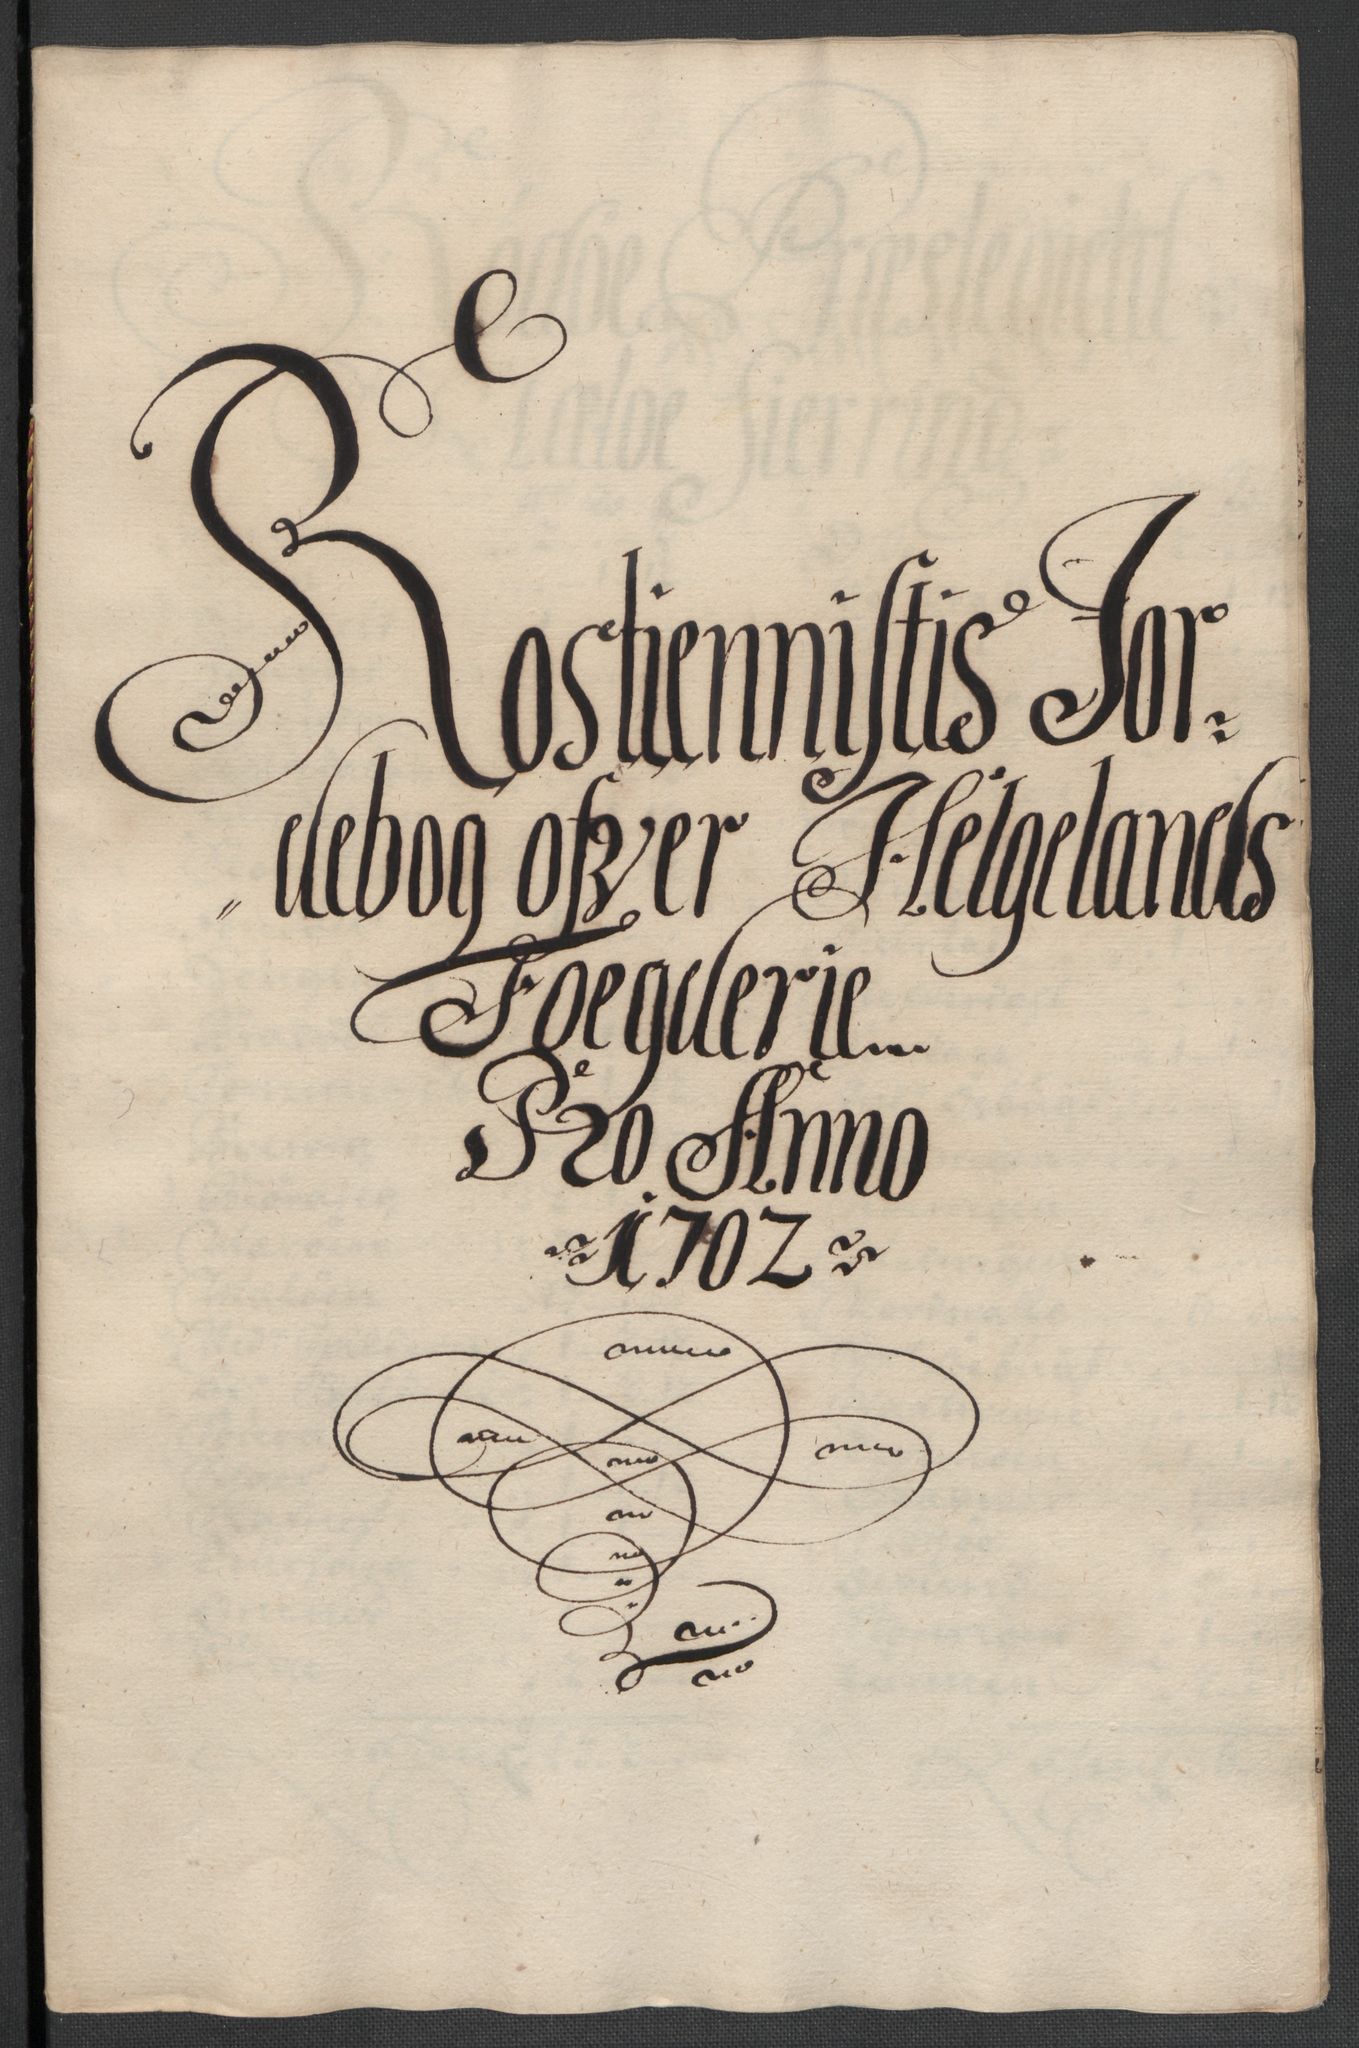 Rostiennistis Jor-
debog offver Helgelands
Foegderie
Pro Anno
1702